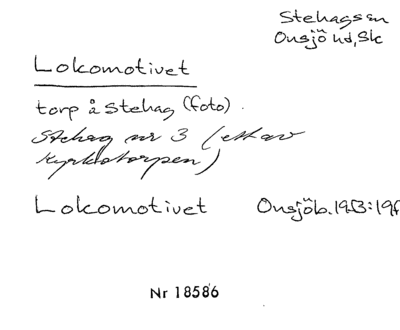 Stehags sn
Onsjö hd, Sk
Lokomotivet
torp å Stehag (foto).
Stehag nr 3 (ett av
Kyrkotorpen)
Lokomotivet Onsjöb. 1953:
Nr 18586